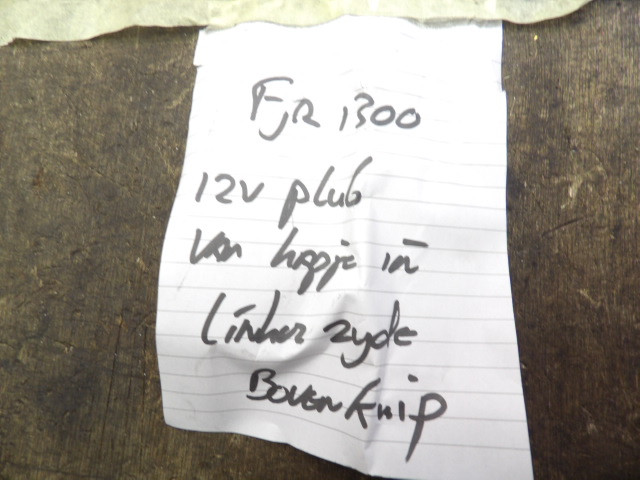 FJR 1300
12V plub
Van kapje in
linker zyde
Boven knip